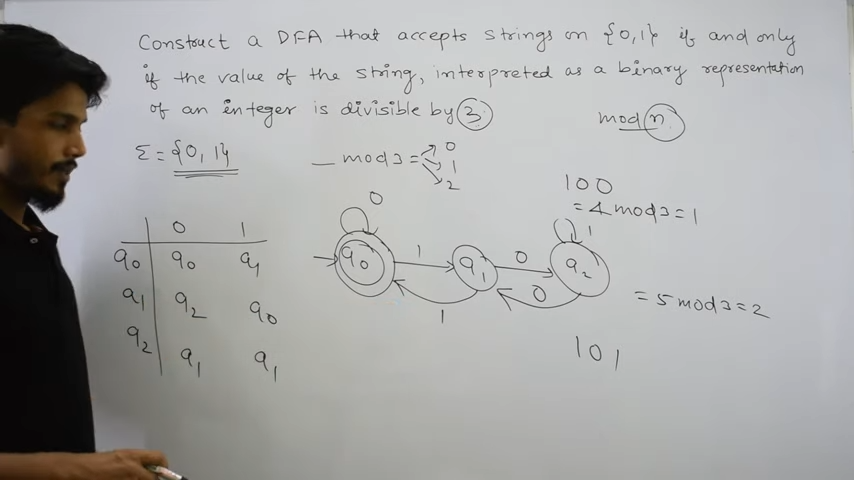 Construct a DFA that accepts strings on {0,1} if and only
if the value of the string, interpreted as a binary representation
of an integer is divisible by 3.
mod n
Σ = {0, 1}
_ mod 3 = 0
1
2
100
= 4 mod 3 = 1
0 1
q0 q0 q1
q1 q2 q0
q2 q1 q1
0
q0 1 q1 0 q2 1
1 0
= 5 mod 3 = 2
101